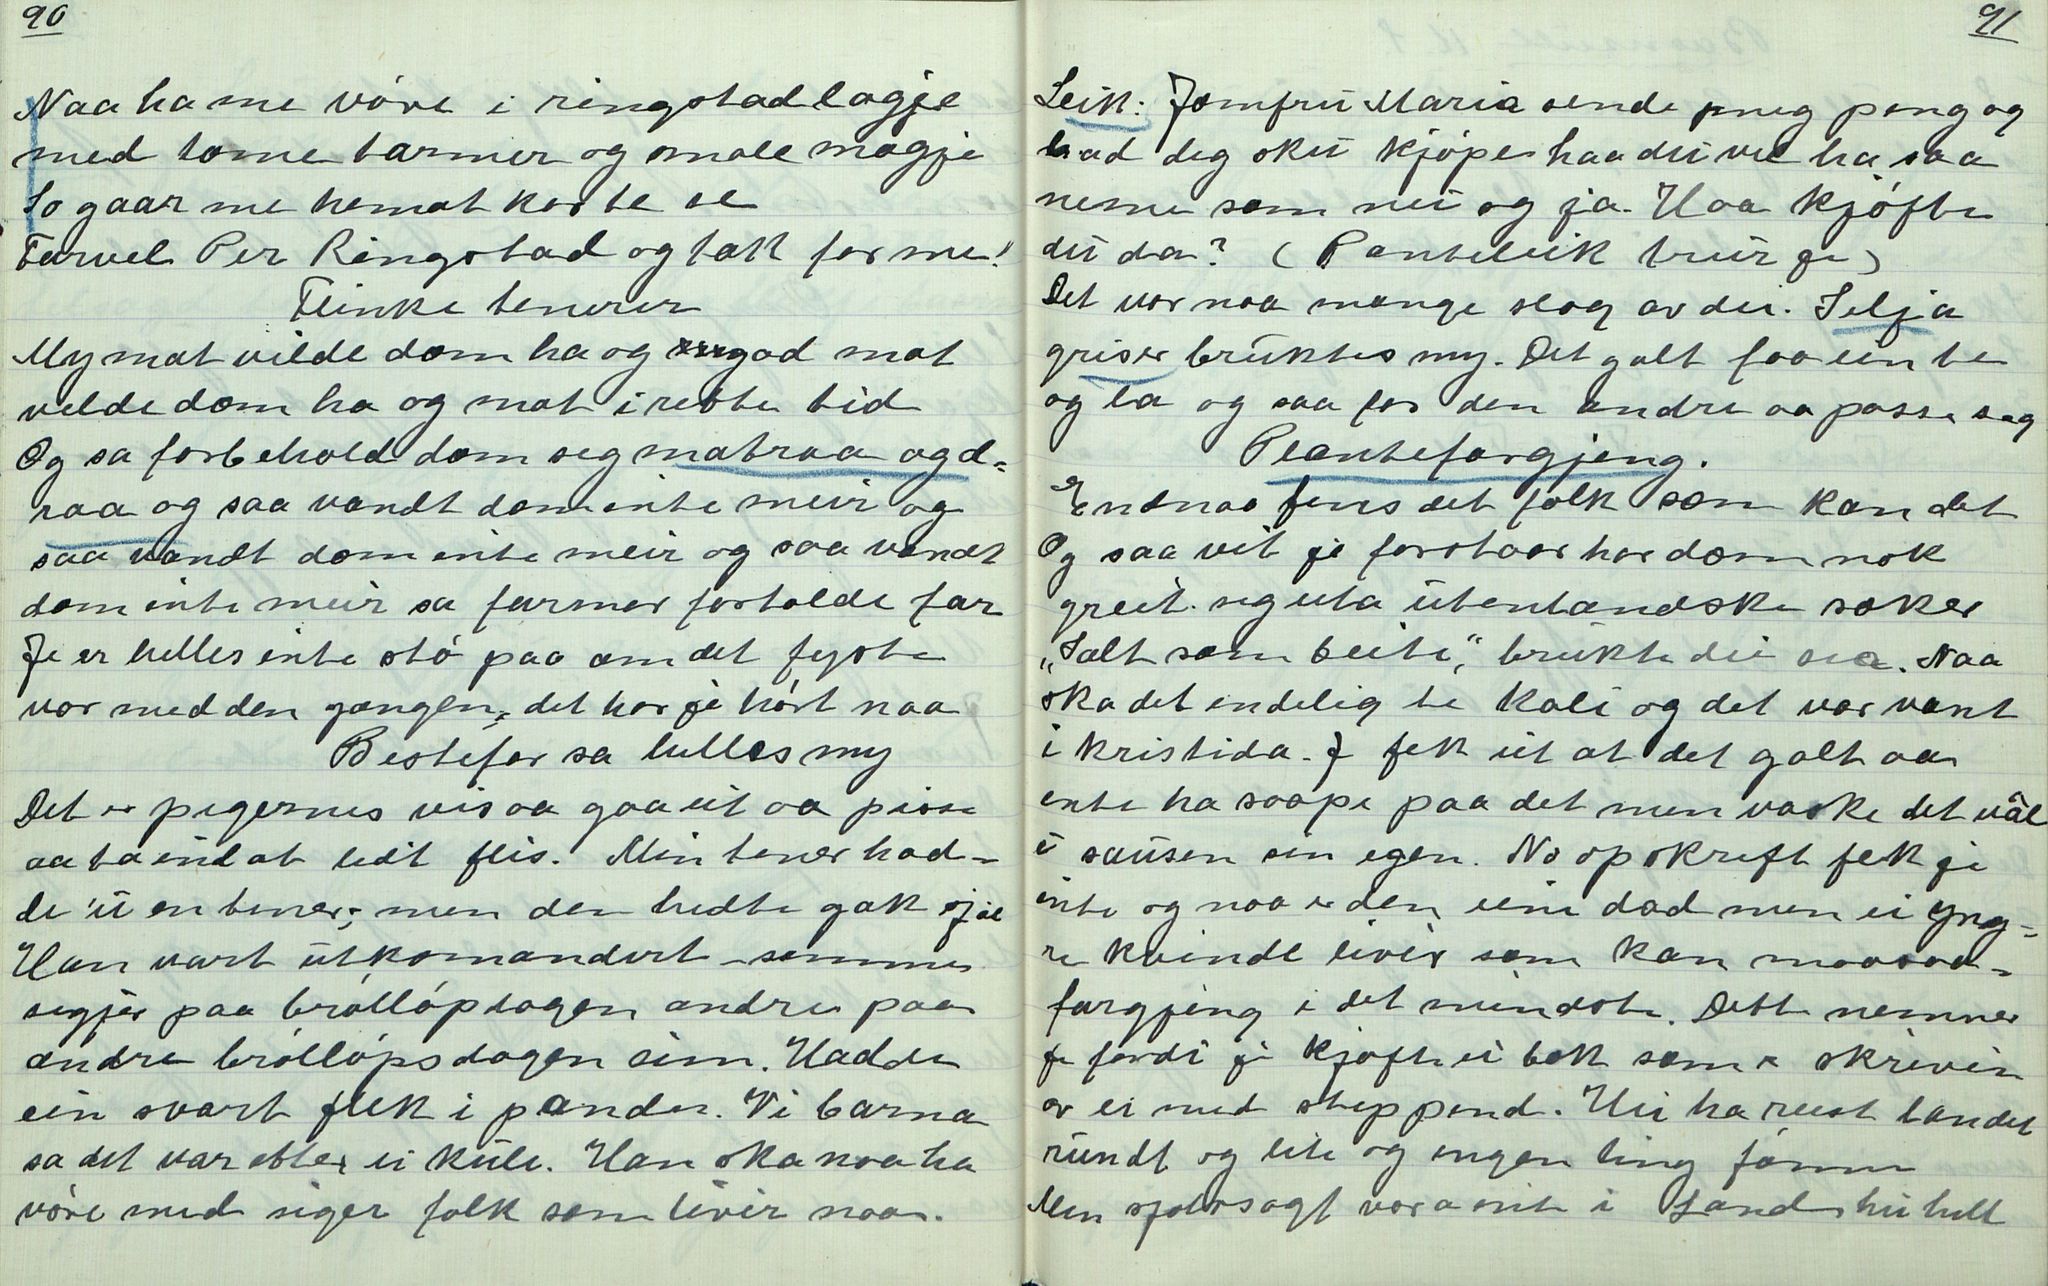 90
Naa ha me vóre i ringstadlagje
med tome tarmer og smale magje
So gaar me hemat korte le
Farvel Per Ringstad og takk for me!
Flinke tenerer
My mat vilde dom ha og god mat
velde dom ha og mat i rette tid
Og sa forbehold dom seg matraa og d=
raa og saa vandt dom inte meir og
saa vandt dom inte meir og saa vandt
dom inte meir sa farmor fortalde far
Je er helles inte stó paa om det fyste
var med den gangen, det har je hórt naa
Bestefar sa helles my
Det er pigernes vis aa gaa ut aa pisse
aa ta ind at lidt flis. Min tener had-
de 'ú en tener; men den hedte gak sjøl
Han vart útkomandert – somme
segjer paa bróllópsdagen andre paa
andre bróllópsdagen sin. Hadde
ein svart flek i panden. Vi barna
sa det var etter ei kúle. Han ska naa ha
vóre med siger folk som livir naa.
91
Leik: Jomfrú Maria sende meg peng og
bad deg skú kjópe haa dú vel ha saa
neme som nei og ja. Haa kjófte
dú da? (Panteleik trúr je)
Det var naa mange slag av dei. Selja
griser brúktes my. Det galt faa ein te
og la og saa for den andre aa passe seg
Plantefargjeng.
Endnaa fins det folk som kan det
Og saa vit je forstaar har dom nok
greit seg uta útenlandske saker
„Salt som beite", brúkte dei sea. Naa
ska det endelig te kali og det var vant
i kristida. J fek út at det galt aa
inte ha saape paa det men vaske det vâl
i sausen sin egen. No opskrift fek je
inte og naa er den eine dad men ei yng=
re kvinde livir som kan
fargjeng i det mindste. Dette nemner
je fordi je kjófte ei bok som er skrivin
av ei med steppend. Hú ha reist landet
rúndt og lite og ingen ting fónne
Men sjølsagt var a inte i Land hú helt